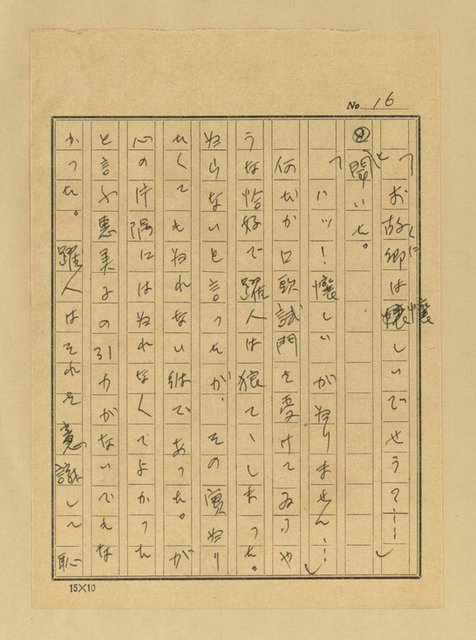 No. 16
「お故郷は懐しいでせう？……」
くに
懐
と聞いた。
「ハッ！懐しいがありません…」
何だか口頭試問を受けてゐるや
うな恰好で躍人は狼てゝしまった。
ないと言ったが、その実
たくてもない継であった。が
心の片隅にはなくてよかった
と言ふ恵美子の引力がないでもな
かった。躍人はそれを意識して恥
15×10